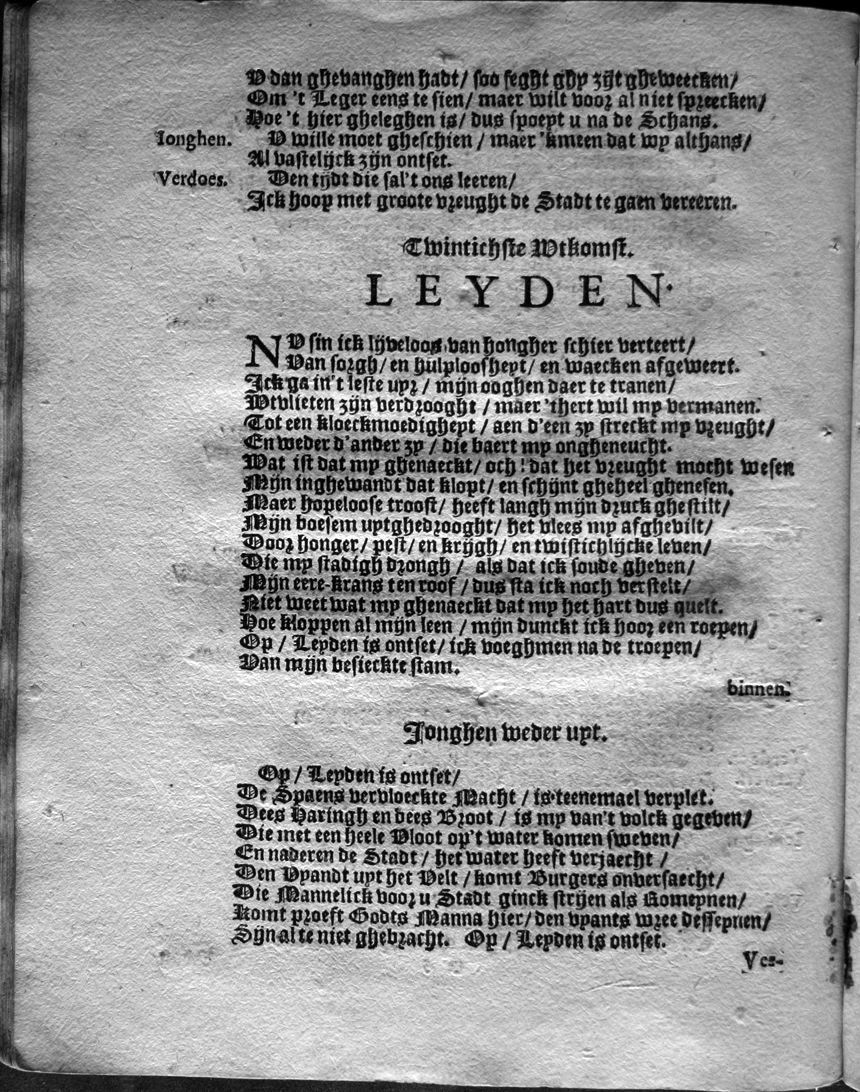 V dan ghevanghen hadt/ soo seght ghy zijt gheweecken/
Om 't Leger eens te sien/ maer wilt voor al niet spreecken/
Hoe 't hier gheleghen is/ dus spoept u na de Schans.
Ionghen. V wille moet gheschien / maer 'kmeen dat wy althans/
Al vastelijck zijn ontset.
Verdoes. Den tijdt die sal't ons leeren/
Ick hoop met groote vreught de Stadt te gaen vereeren.
Twintichste Wtkomst.
LEYDEN.
NV sin ick lijveloos van hongher schier verteert/
Van sorgh/ en hulploosheyt/ en waecken afgeweert.
Ick ga in't leste uyr/ mijn ooghen daer te tranen/
Wtvlieten zijn verdrooght / maer 'thert wil my vermanen.
Tot een kloeckmoedigheyt / aen d'een zy streckt my vreught/
En weder d'ander zy / die baert my ongheneucht.
Wat ist dat my ghenaeckt/ och! dat het vreught mocht wesen
Mijn inghewandt dat klopt/ en schijnt gheheel ghenesen.
Maer hopeloose troost/ heeft langh mijn druck ghestilt/
Mijn boesem uytghedrooght/ het vlees my afghevilt/
Door honger/ pest/ en krijgh/ en twistichlijcke leven/
Die my stadigh drongh / als dat ick soude gheven/
Mijn eere-krans ten roof / dus sta ick noch verstelt/
Niet weet wat my ghenaeckt dat my het hart dus quelt.
Hoe kloppen al mijn leen / mijn dunckt ick hoor een roepen/
Op / Leyden is ontset/ ick voeghmen na de troepen/
Van mijn besieckte stam.
binnen.
Jonghen weder uyt.
Op / Leyden is ontset/
De Spaens vervloeckte Macht / is teenemael verplet.
Dees Haringh en dees Broot / is my van't volck gegeven/
Die met een heele Vloot op't water komen sweven/
En naderen de Stadt / het water heeft verjaecht /
Den Vyandt uyt het Velt / komt Burgers onversaecht/
Die Mannelick voor u Stadt ginck strijen als Romeynen/
Komt proeft Godts Manna hier/ den vyants wree desseynen/
Sijn al te niet ghebracht. Op / Leyden is ontset.
Ves-